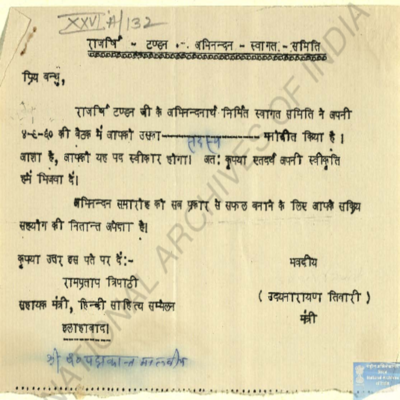 XXVI A/132
राजर्षि - टण्डन -.- अभिनन्दन - स्वागत- समिति
प्रिय बन्धु,
राजर्षि टण्डन जी के अभिनन्दनार्थ निर्मित स्वागत समिति ने अपनी
४-६-६० की बैठक में आपको उसका सदस्य मनोनीत किया है ।
आशा है, आपको यह पद स्वीकार होगा। अत: कृपया एतदर्थ अपनी स्वीकृति
हमें भिजवा दें।
अभिनन्दन समारोह को सब प्रकार से सफल बनाने के लिए आपके सक्रिय
सहयोग की नितान्त अपेक्षा है।
कृपया उत्तर इस पते पर दें:-
भवदीय
रामप्रताप त्रिपाठी
सहायक मंत्री, हिन्दी साहित्य सम्मेलन
( उदयनारायण तिवारी )
इलाहाबाद।
मंत्री
श्री पं० पद्मकान्त मालवीय
NATIONAL ARCHIVES OF INDIA